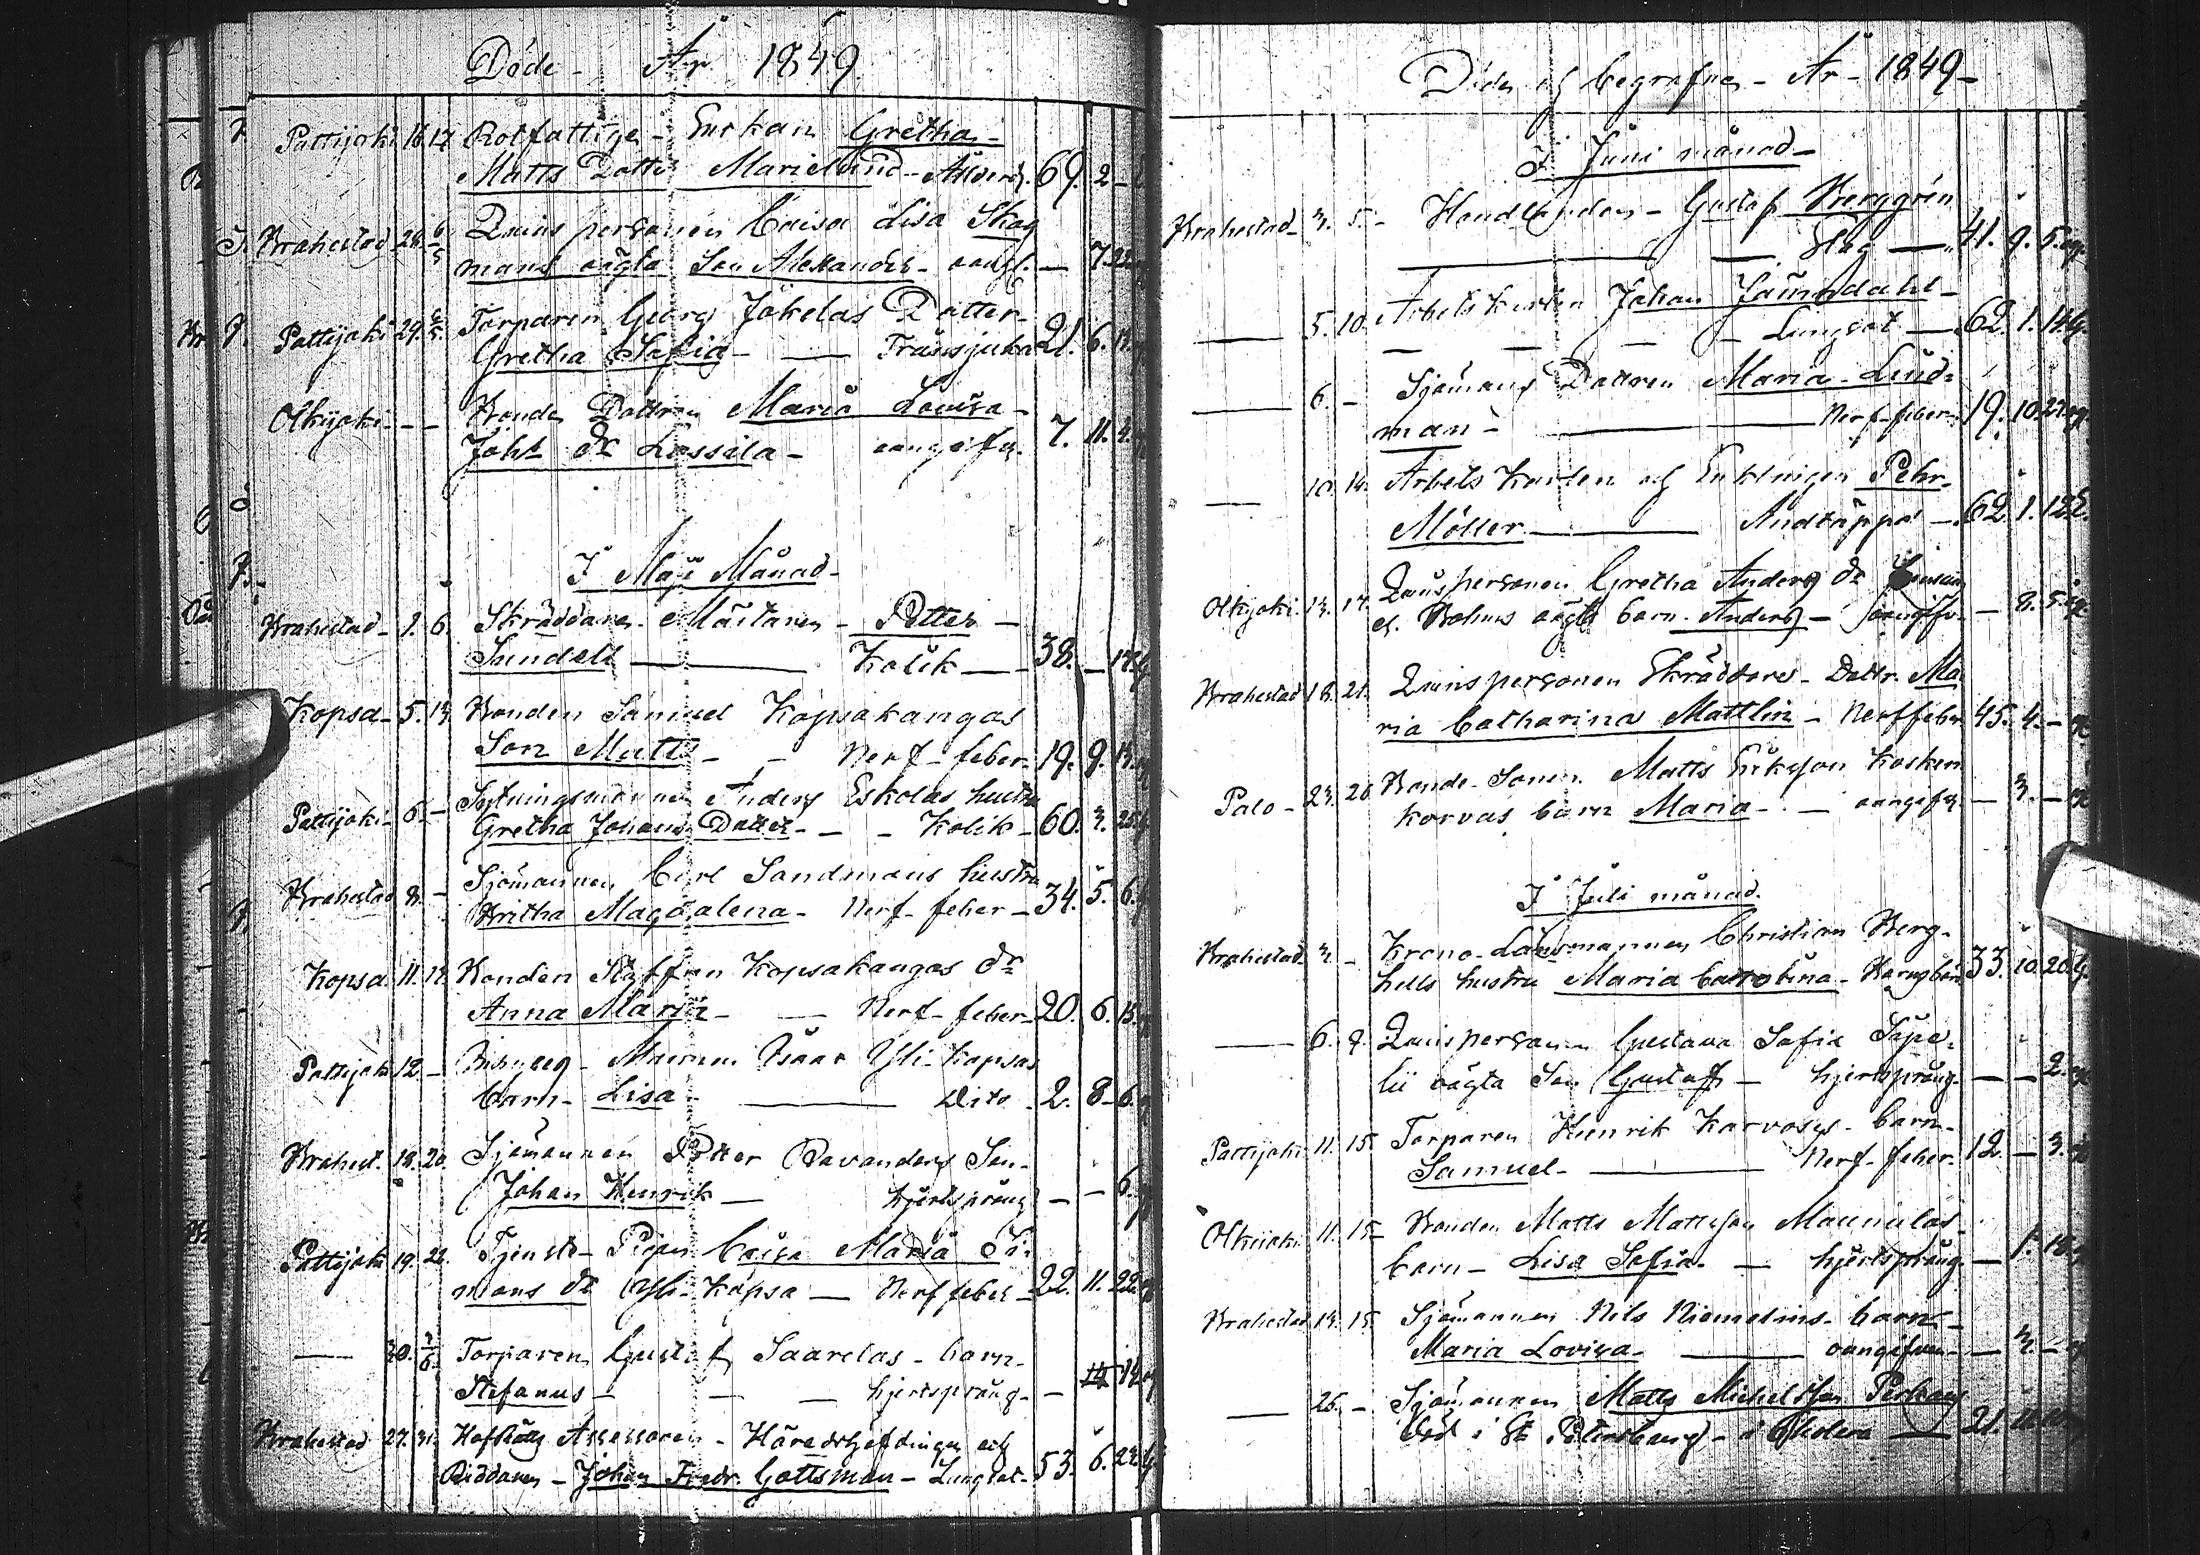 Döde - År 1849
Pattijoki 16. 17. Rotfattige - Enkan Gretha
Matts Dotter Marielund - Ålderd. 69. 2 -
Brahestad 28. 6/5 Qvinspersonen Caisa Lisa Skog
mans oägta Son Alexander - oangf. - 7. 22.
Pattijoki 29. 6/5. Torparen Georg Jökelas Dotter
Gretha Sofia - Trånsjuka 21. 6. 14.
Olkijoki - - Bonde Dottren Maria Lovisa
Joh. dr Lassila - oangifv. 7. 11. 4.
I Maji Månad
Brahestad - 1. 6. Skräddare Mästaren - Petter -
Sundell - Kolik - 38. - 17.
Kopsa - 5. 13. Bonden Samuel Kopsakangas
Son Matts - Nerf-feber - 19. 9. 13.
Pattijoki 6. - Anders Eskolas hustru
Gretha Johans Dotter - - Kolik - 60. 3. 25.
Brahestad 8. - Sjömannen Carl Sandmans hustru
Britha Magdalena - Nerf-feber - 34. 5. 6.
Kopsa 11. 17. Bonden Staffan Kopsakangas dr
Anna Maria - Nerf-feber - 20. 6. 15.
Pattijoki 12 - Isaac Yli-Kopsas
barn - Lisa - Dito - 2. 8 - 6.
Brahest. 18. 20. Sjömannen Petter Ravanders Son
Johan Henrik - hjertsprång - - 6.
Pattijoki 19. 22. Tjenste-Pigan Caisa Maria Si-
mons dr Yli-Kopsa - Nerffeber - 22. 11. 22.
— 30. 3/6. Torparen Gustaf Saarelas - barn
Stefanus - hjertsprång - - 14
Brahestad 27. 31. Hofrätts Assessoren - Häradshöfdingen och
Riddaren - Johan Fredr. Gottsman - Lungsot - 53. 6. 22.
Döde och begrafne - År - 1849 -
I Juni månad -
Brahestad - 3. 5. - Handlanden - Gustaf Berggrén
- Slag - 41. 9. 5.
— 5. 10. Arbetskarlen Johan
- Lungsot - 62. 1. 14.
— 6. - Sjömans Dottren Maria Lind-
man - Nerf-feber - 19. 10. 27.
— 10. 14. Arbets Karlen och Enklingen Pehr
Möller - Andtäppa - 62. 1. 12.
Olkijoki 13. 17. Qvinspersonen Gretha Anders dr
oägta barn Anders - oangifv. - 8. 5.
Brahestad 18. 21. Qvinspersonen Skräddare - Dottr. Ma
ria Catharina Mattlin - Nerffeber 45. 4. -
Palo - 23. 26. Bonde-Sonen Matts Eriksson Kosken
korvas barn Maria - oangifv. - 3. -
I Juli månad.
Brahestad 3. - Krono-Länsmannen Christian Berg-
hells hustru Maria Carolina - Barnsbörd 33. 10. 20.
— 6. 9. Qvinspersonen Gustava Sofia Sipe-
lii oägta Son Gustaf - hjertsprång - - 2.
Pattijoki 11. 15. Torparen Henrik Karvosys - barn
Samuel - Nerf-feber 12. - 3.
Olkijoki 11. 15. Bonden Matts Mattsson Maunulas
barn - Lisa Sofia - hjertsprång - 1. 18.
Brahestad 13. 15. Sjömannen Nils Niemelins - barn
Maria Lovisa - oangifven - - 3. -
— 26. - Sjömannen Matts Michelsson
Död i St Petersburg - i Cholera - 21.